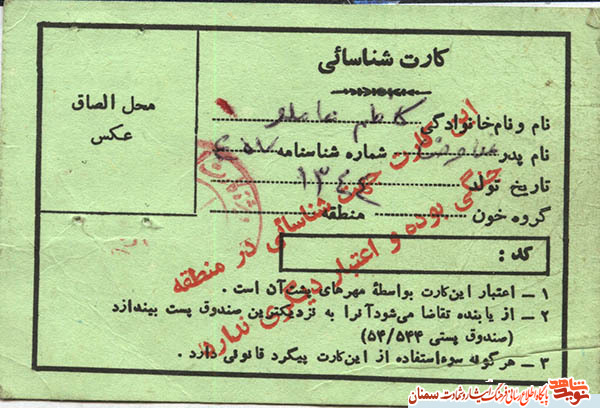 کارت شناسائی
محل الصاق
عکس
نام و نام‌خانوادگی کاظم عاملو
نام پدر شماره شناسنامه
تاریخ تولد ۱۳۴۴
گروه خون منطقه
کد :
این کارت جهت شناسائی در منطقه
جنگی بوده و اعتبار دیگری ندارد
۱ – اعتبار این‌کارت بواسطهٔ مهرهای پشت‌آن است .
۲ – از یابنده تقاضا می‌شود آنرا به نزدیکترین صندوق پست بیندازد
(صندوق پستی ۵۴/۵۴۴)
۳ – هرگونه سوءاستفاده از این‌کارت پیگرد قانونی دارد .
نوید شاهد
پایگاه اطلاع رسانی فرهنگ ایثار و شهادت سمنان